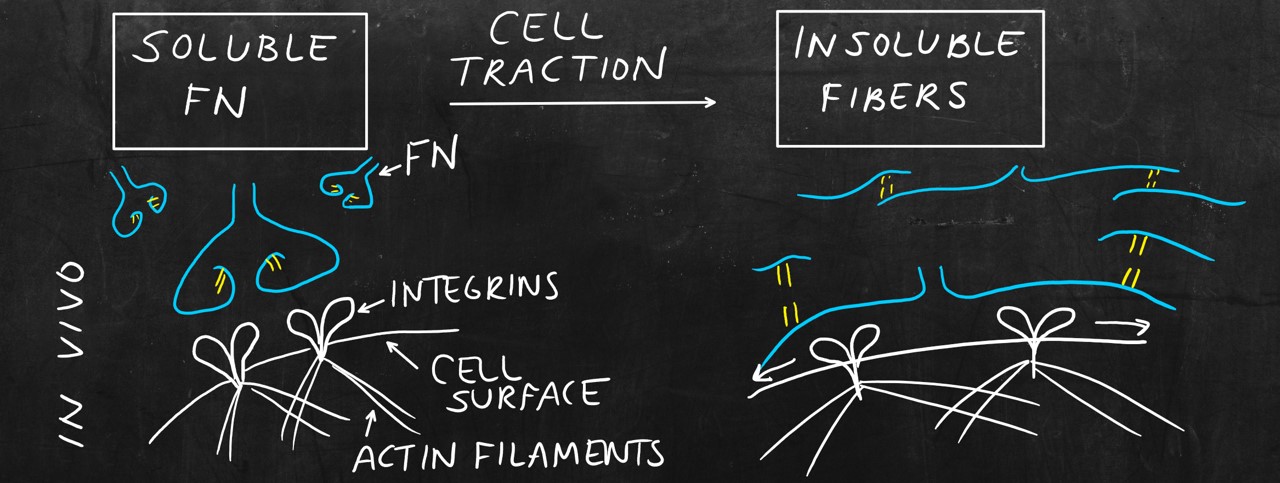 SOLUBLE
FN
CELL
TRACTION
INSOLUBLE
FIBERS
FN
IN VIVO
INTEGRINS
CELL
SURFACE
ACTIN FILAMENTS